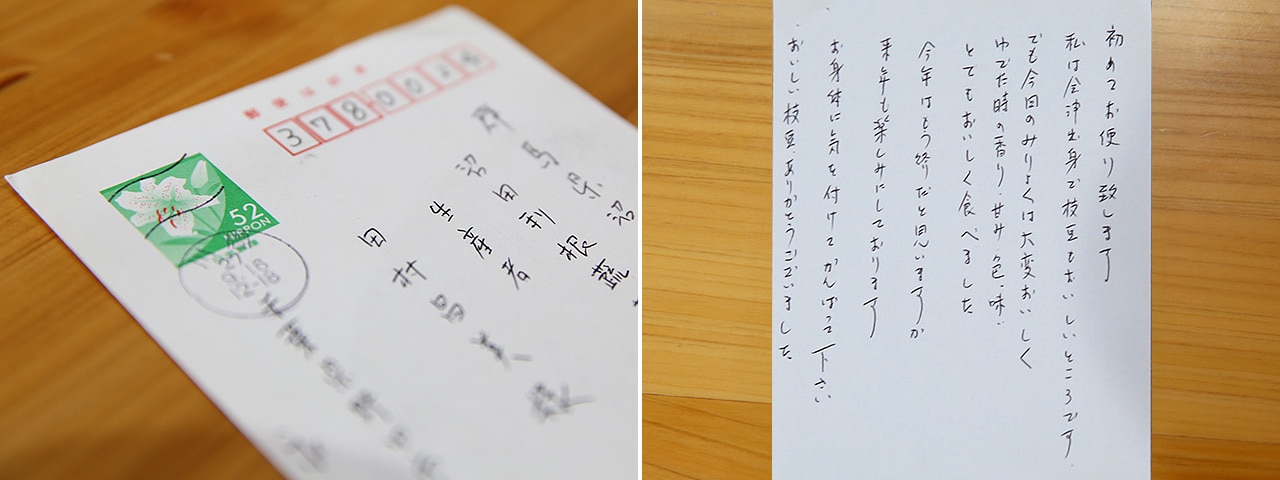 郵便はがき
3780026
52
NIPPON
27
9.18
12-18
群馬県沼
沼田利根蔬
生産者
田村昌美様
千葉県野田市
初めてお便り致します
私は会津出身で枝豆もおいしいところです.
でも今回のみりょくは大変おいしく
ゆでた時の香り、甘み、色、味、
とてもおいしく食べました
今年はもう終りだと思いますが
来年も楽しみにしております
お身体に気を付けてがんばって下さい
おいしい枝豆、ありがとうございました